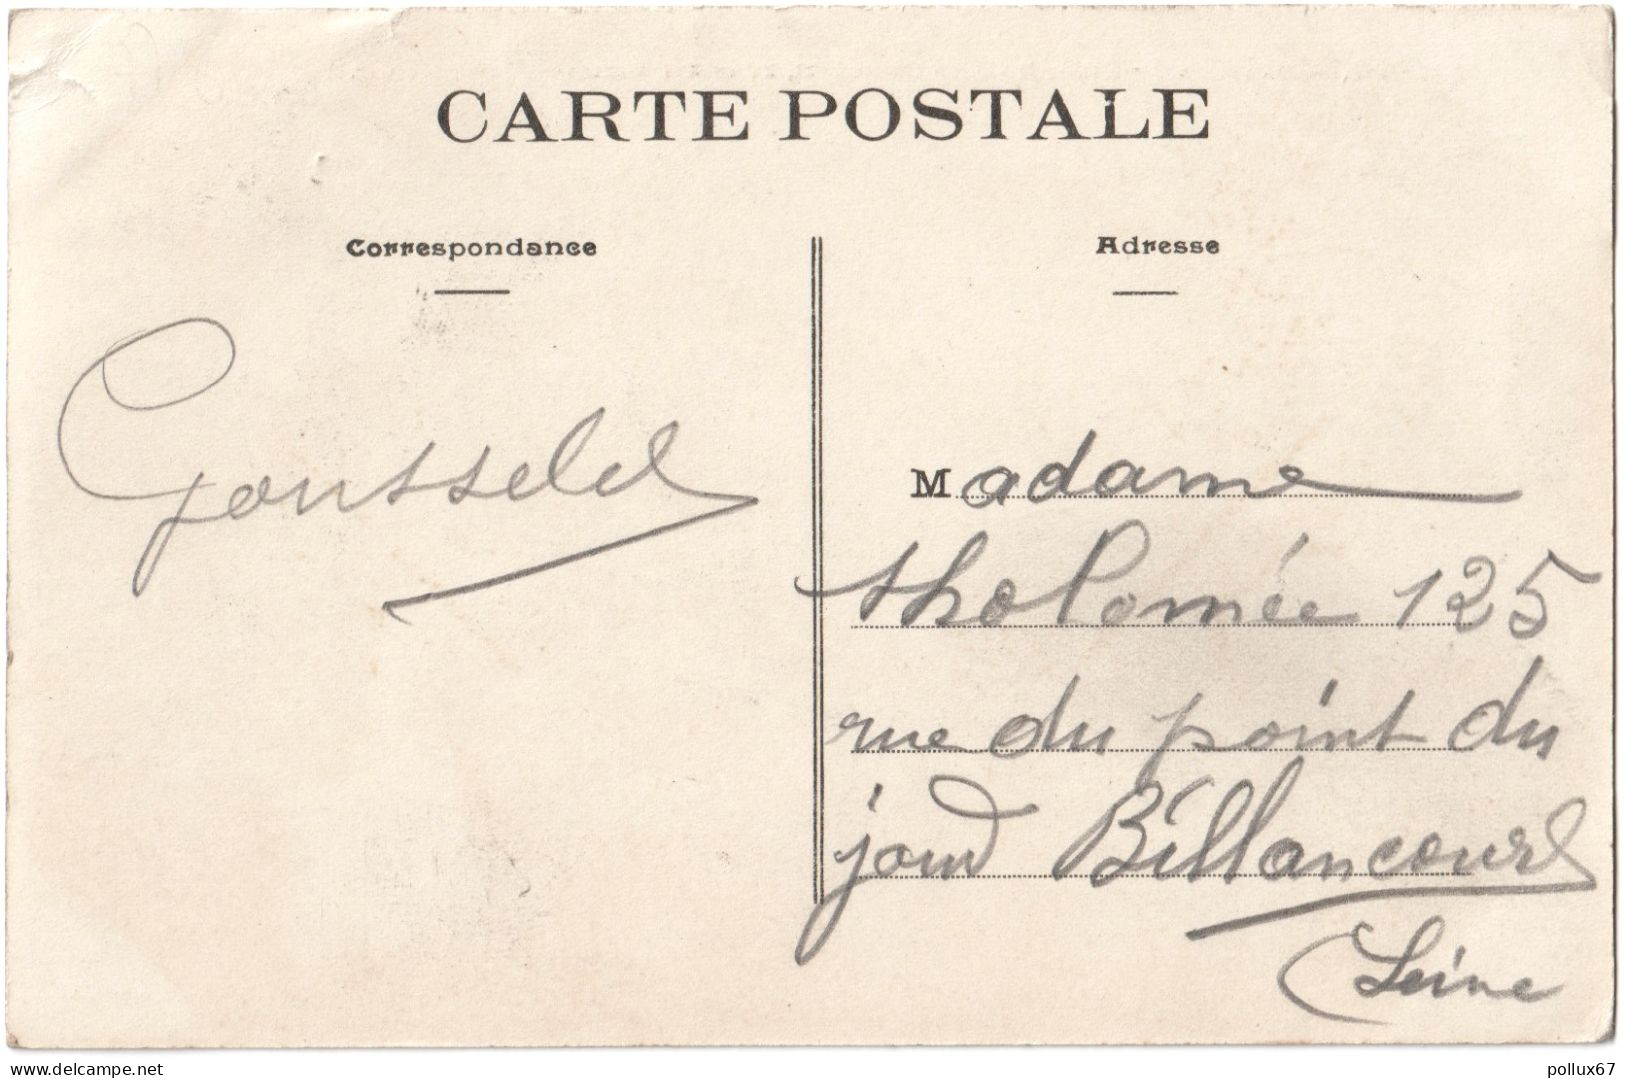 CARTE POSTALE
Correspondance
Adresse
Gousselet
Madame
tholomée 125
rue du point du
jour Billancourt
(Seine
delcampe.net
pollux67